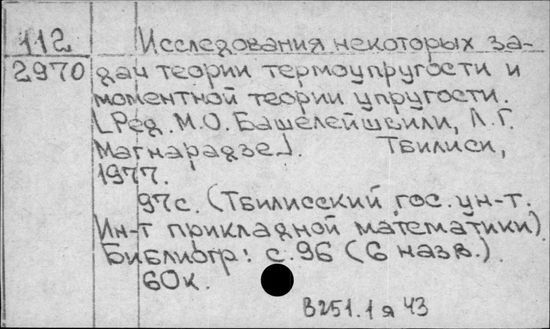 112 Исследования некоторых за-
2970 дач теории термоупругости и
моментной теории упругости.
[Ред. М.О. Башелейшвили, Л.Г.
Магнарадзе]. Тбилиси,
1977.
97с. (Тбилисский гос. ун-т.
Ин-т прикладной математики)
Библиогр: с. 96 (6 назв.).
60к.
В251.1я43